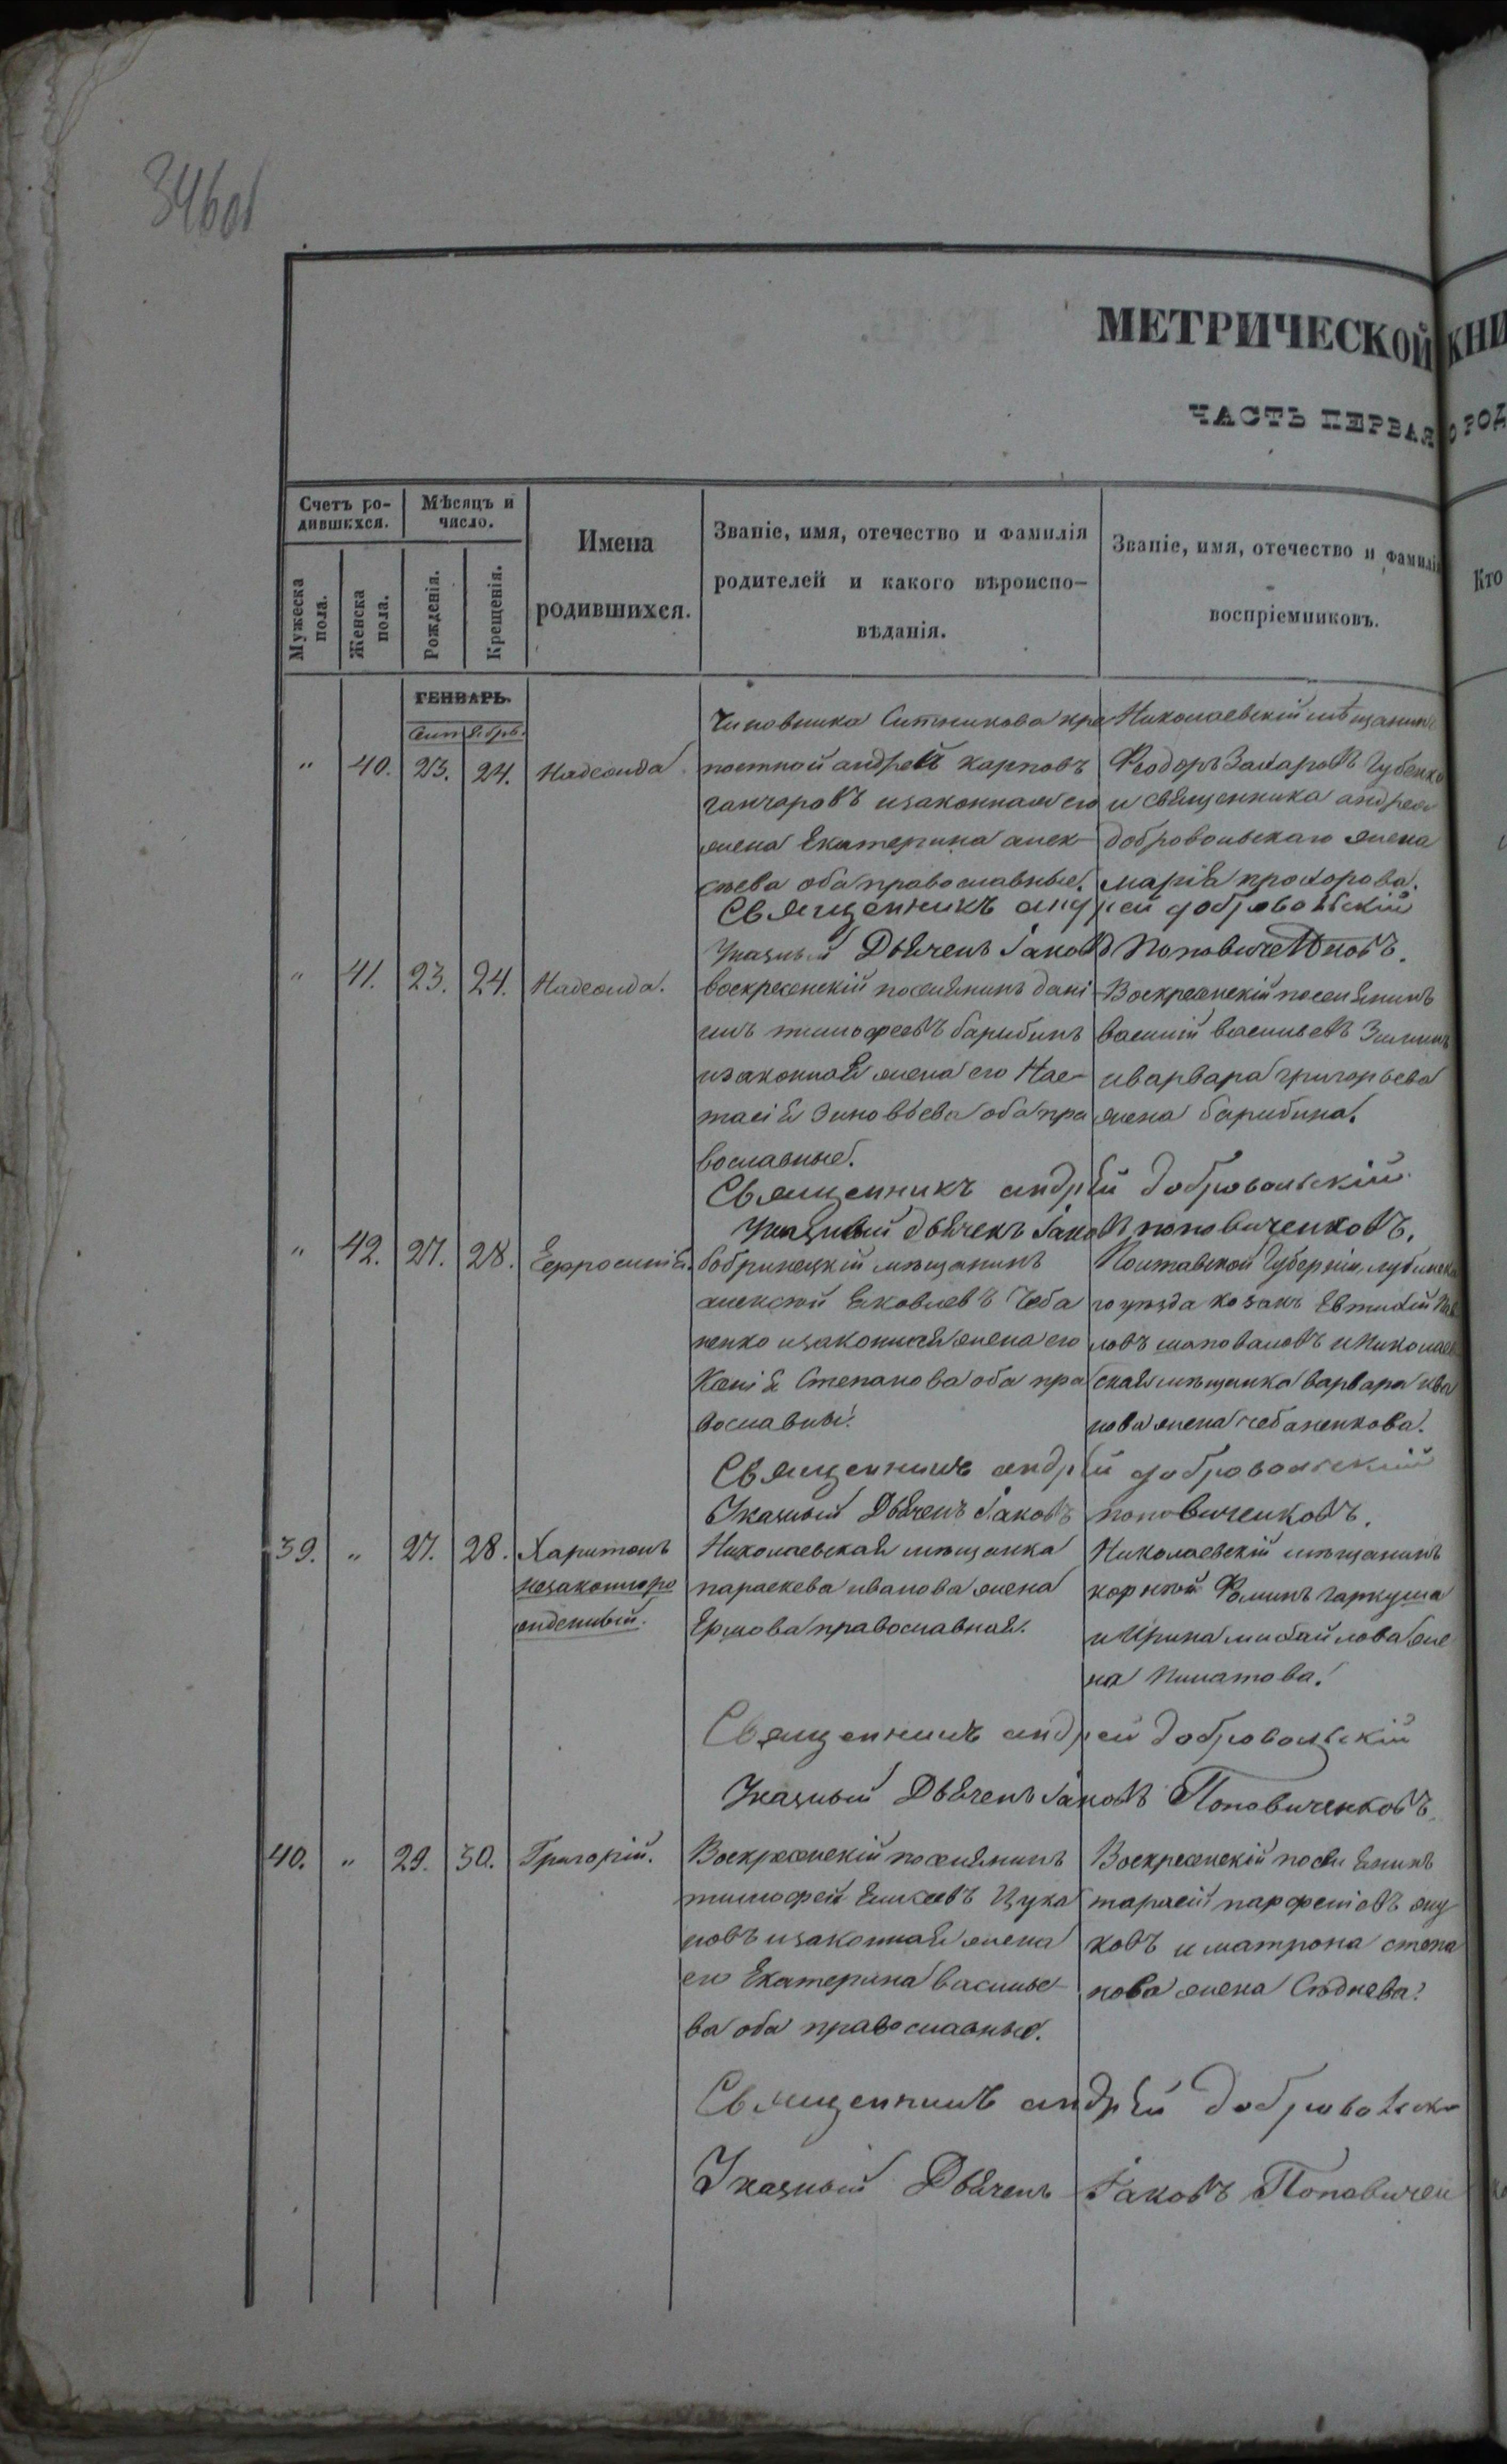 346об
МЕТРИЧЕСКОЙ КНИ
ЧАСТЬ ПЕРВАЯ О РОД
Счетъ ро-
дившихся.
Мѣсяцъ и
число.
Мужеска
пола.
Женска
пола.
Рожденія.
Крещенія.
Имена
родившихся.
Званіе, имя, отечество и фамилія
родителей и какого вѣроиспо-
вѣданія.
Званіе, имя, отечество и фамилі
воспріемниковъ.
Кто
ГЕНВАРЬ.
Сентябрь.
" 40. 23. 24. Надежда
Чиновника Ситникова кре
постной андрей карповъ
ганчаровъ изаконная его
жена Екатерина алек
сѣева оба православные.
Николаевскій мѣщанинъ
Феодоръ Захаровъ Губенко
и священника андрея
добровольскаго жена
марія прохорова.
Священникъ андрей добровольскій
Указный Дьячекъ Іаковъ Поповиченковъ.
" 41. 23. 24. Надежда.
воскресенскій поселянинъ дані
илъ тимофеевъ барибинъ
изаконная жена его Нас-
тасія Зиновьева оба пра
вославные.
Воскресенскій поселянинъ
василій васильевъ Зиминъ
иварвара григорьева
жена барибина.
Священникъ андрей добровольскій
Указный дьячекъ Іаковъ поповиченковъ.
" 42. 27. 28. Ефросинія.
бобринецкій мѣщанинъ
алексѣй Яковлевъ Чеба
ненко изаконная жена его
Ксенія Степанова оба пра
вославные.
Полтавской Губерніи лубенска
го уѣзда козакъ Евтихій Пав
ловъ шаповаловъ иНиколаев
ская мѣщанка варвара ива
нова жена чебаненкова.
Священникъ андрей добровольскій
Указный Дьячекъ Іаковъ поповиченковъ.
39. " 27. 28. Харитонъ
незаконноро
жденный.
Николаевская мѣщанка
параскева иванова жена
Ершова православная.
Николаевскій мѣщанинъ
корнѣй Фоминъ гаркуша
и Ирина михайлова же
на Пилатова.
Священникъ андрей добровольскій
Указный Дьячекъ Іаковъ Поповиченковъ
40. " 29. 30. Григорій.
Воскресенскій поселянинъ
тимофей Елисеевъ Цука
новъ изаконная жена
его Екатерина василье-
ва оба православные.
Воскресенскій поселянинъ
тарасій парфеніовъ жу
ковъ и матрона степа
нова жена Сѣднева.
Священникъ андрей добровольск
Указный Дьячекъ Іаковъ Поповичен